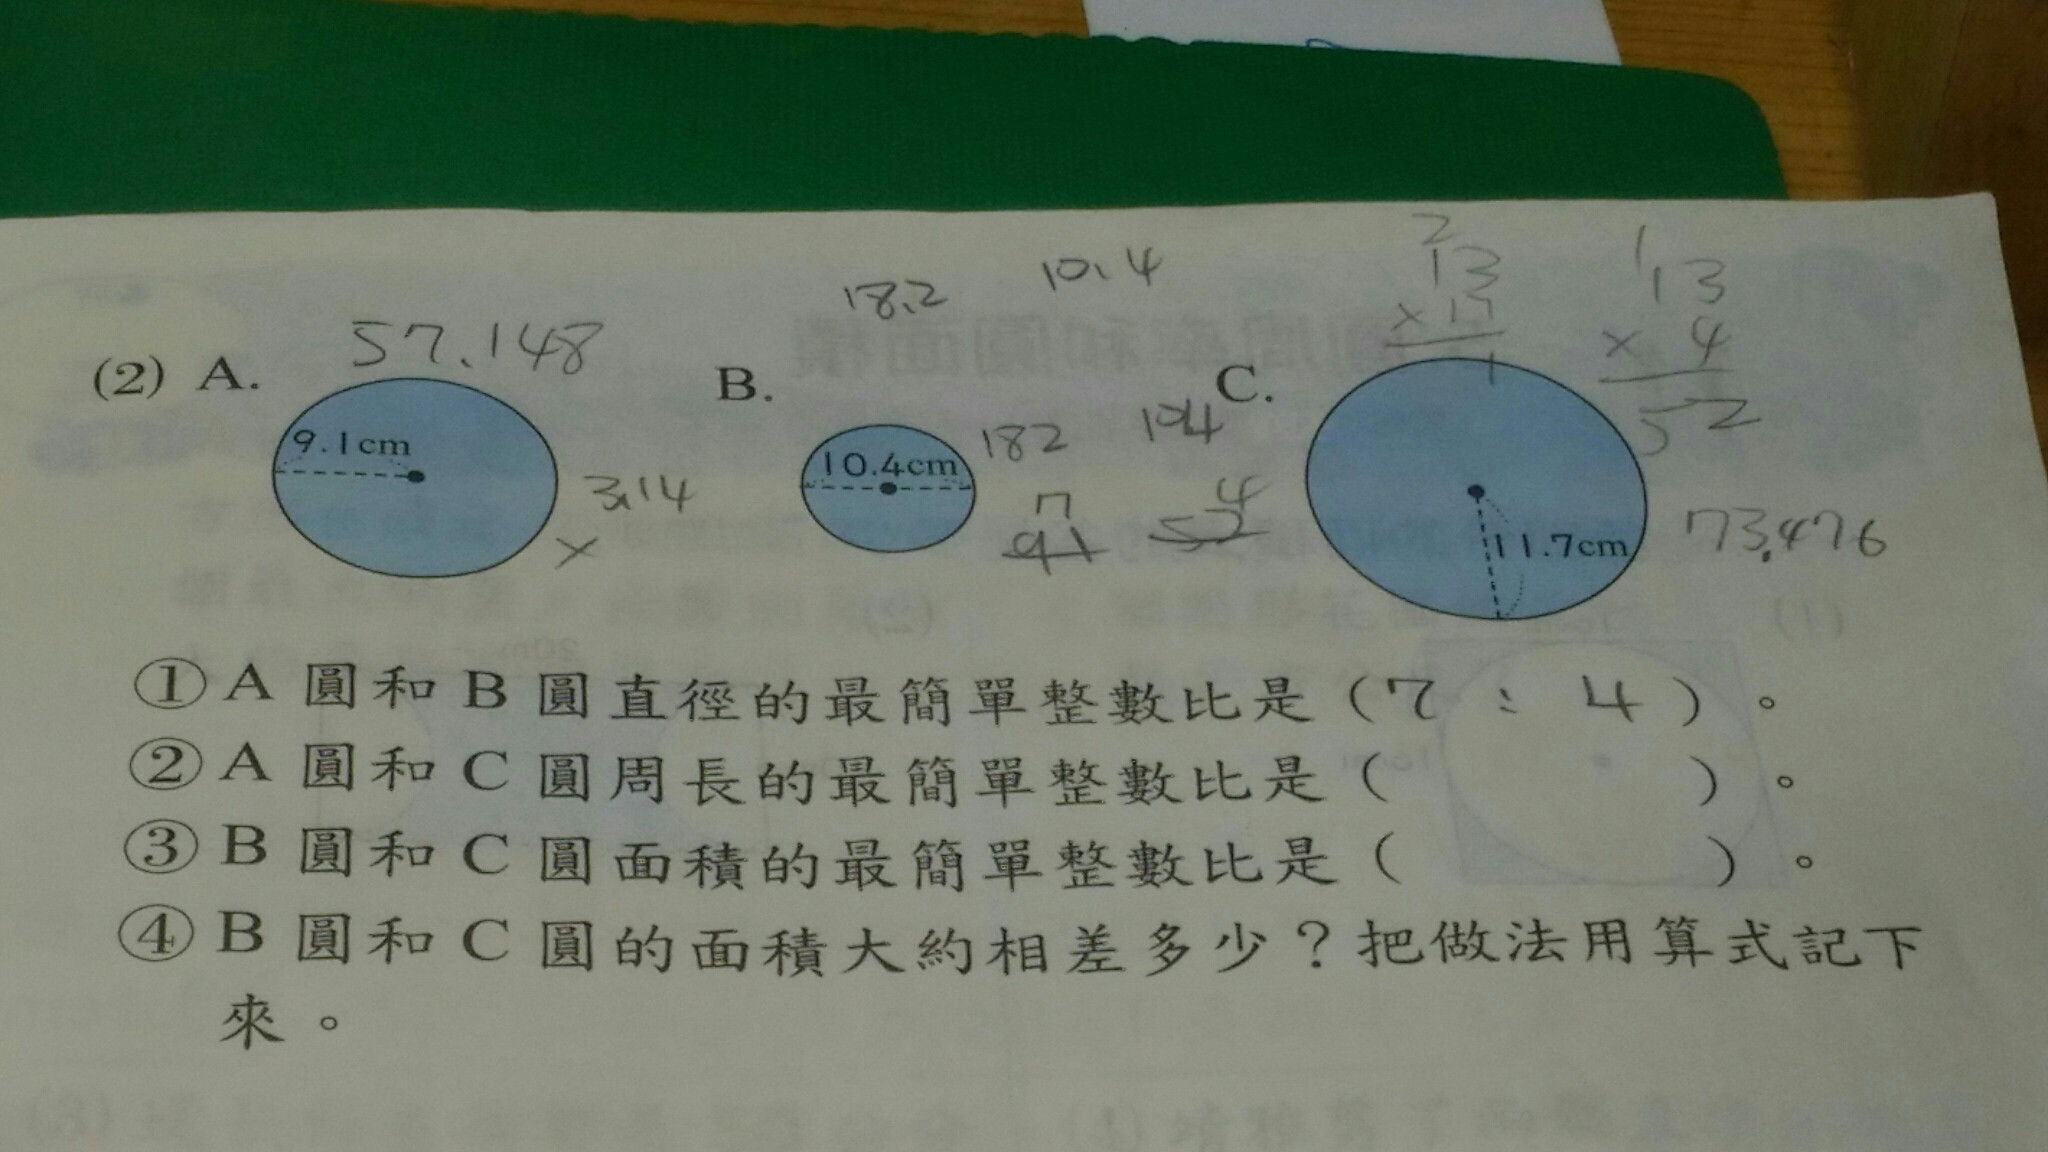 10.4
18.2
13
× 17
1
13
× 4
52
(2) A.
57.148
B.
C.
9.1cm
3.14
×
10.4cm
182
104
7
91
4
52
11.7cm
73.476
① A 圓和 B 圓直徑的最簡單整數比是(7 : 4)。
② A 圓和 C 圓周長的最簡單整數比是( )。
③ B 圓和 C 圓面積的最簡單整數比是( )。
④ B 圓和 C 圓的面積大約相差多少?把做法用算式記下
來。